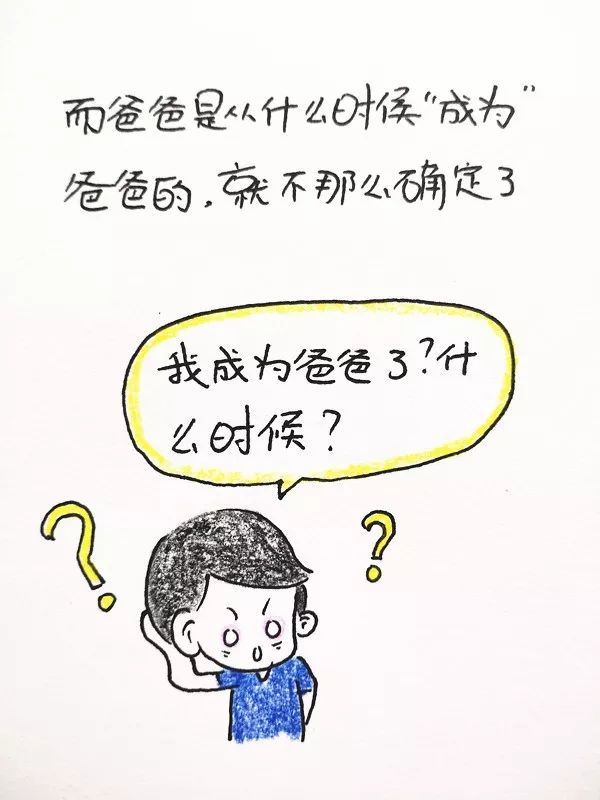 而爸爸是从什么时候“成为”
爸爸的，就不那么确定了
我成为爸爸了？什
么时候？
？
？